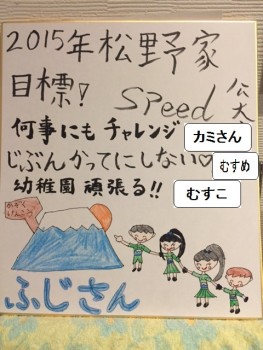 2015年松野家
目標! Speed 公大
何事にもチャレンジ カミさん
じぶんかってにしない♡ むすめ
幼稚園 頑張る!! むすこ
かぞく
けんこう
ふじさん